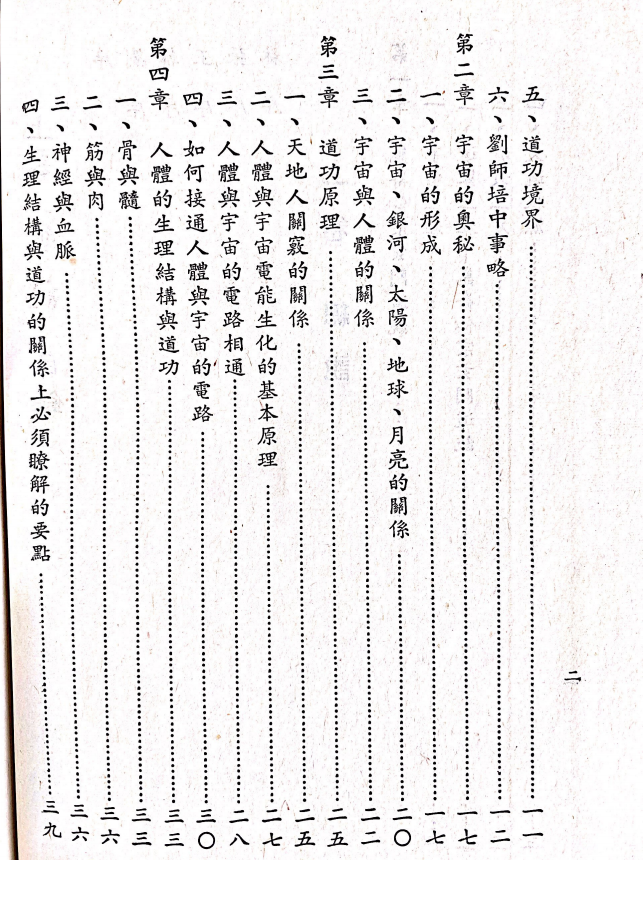 二
五、道功境界……一一
六、劉師培中事略……一二
第二章 宇宙的奧秘……一七
一、宇宙的形成……一七
二、宇宙、銀河、太陽、地球、月亮的關係……二〇
三、宇宙與人體的關係……二二
第三章 道功原理……二五
一、天地人關竅的關係……二五
二、人體與宇宙電能生化的基本原理……二七
三、人體與宇宙的電路相通……二八
四、如何接通人體與宇宙的電路……三〇
第四章 人體的生理結構與道功……三三
一、骨與髓……三三
二、筋與肉……三六
三、神經與血脈……三六
四、生理結構與道功的關係上必須瞭解的要點……三九